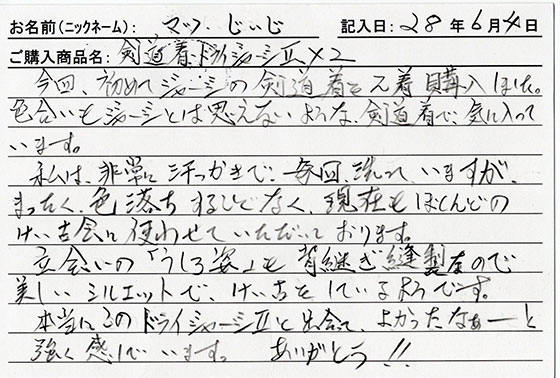 お名前(ニックネーム): マック じいじ 記入日: 28年6月4日
ご購入商品名: 剣道着ドライジャージⅡ×2
今回、初めてジャージの剣道着を2着購入しました。
色合いもジャージとは思えないような、剣道着で、気に入って
います。
私は、非常に汗っかきで、毎回、洗っていますが、
まったく、色落ちすることなく、現在もほとんどの
けい古会に使わせていただいております。
立会いの「うしろ姿」も背継ぎ縫製なので
美しいシルエットで、けい古をしているようです。
本当にこのドライジャージⅡと出会って、よかったなぁーと
強く感じています。 ありがとう!!